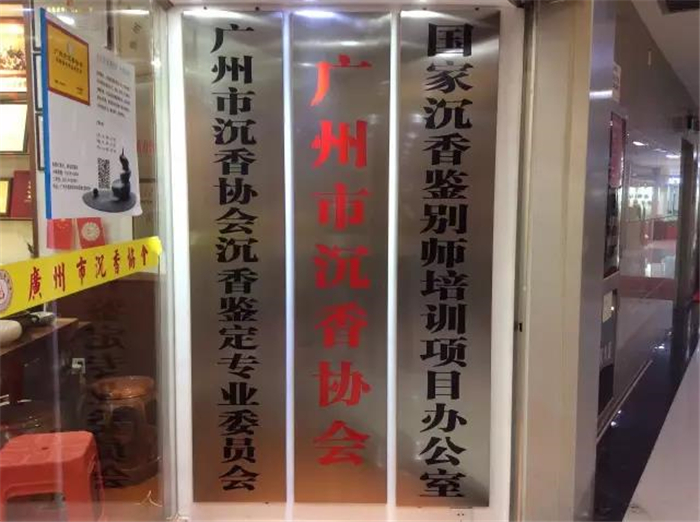 国家沉香鉴别师培训项目办公室
广州市沉香协会
广州市沉香协会沉香鉴定专业委员会
廣州市沉香協會